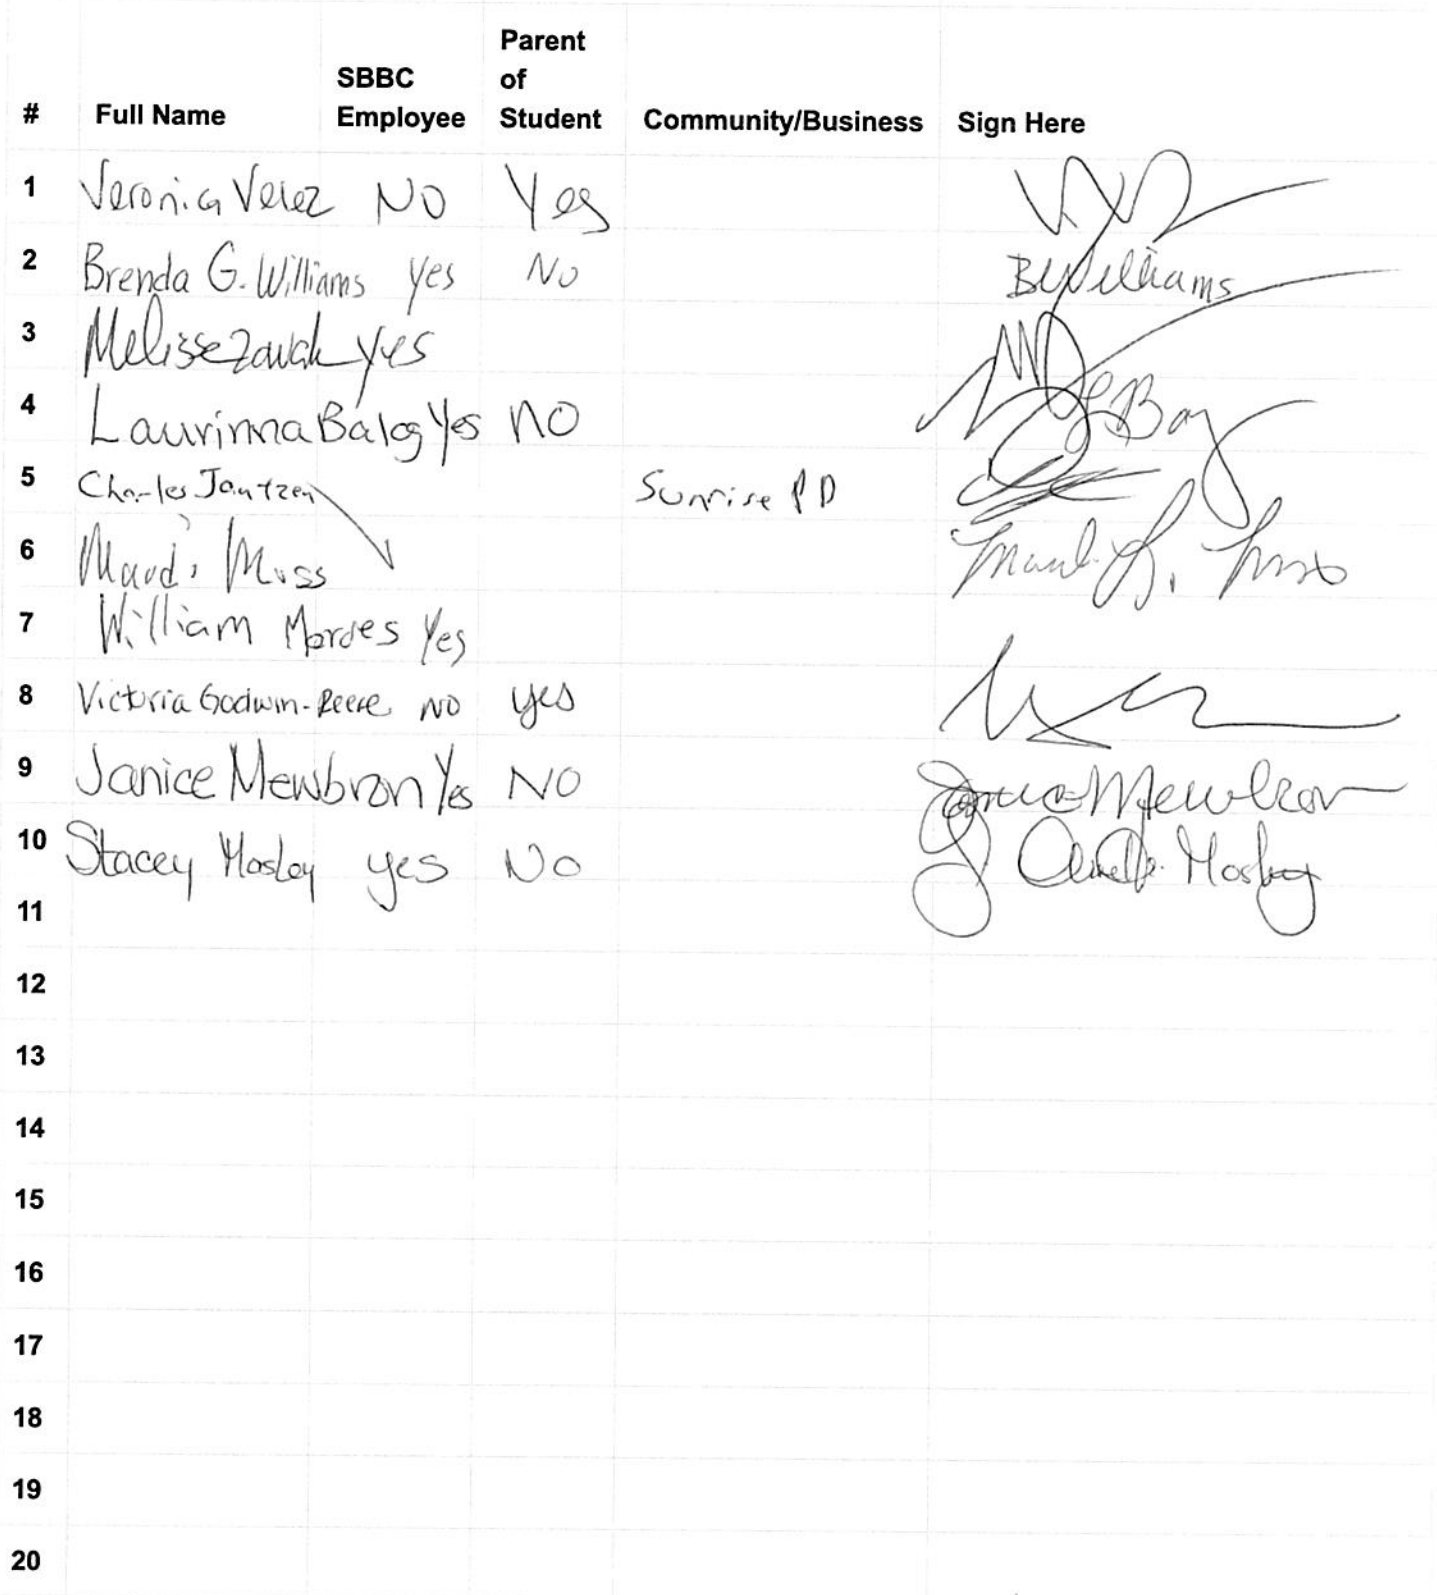 # Full Name SBBC Employee Parent of Student Community/Business Sign Here
1 Veronica Velez NO Yes
2 Brenda G. Williams Yes No BWilliams
3 Yes
4 Laurinna Balog Yes NO
5 Charles Jantzen Sunrise PD
6 Moss
7 William Yes
8 Victoria Godwin-Reese NO yes
9 Janice Mewbron Yes NO Janice Mewbron
10 Stacey Mosley yes No Mosley
11
12
13
14
15
16
17
18
19
20